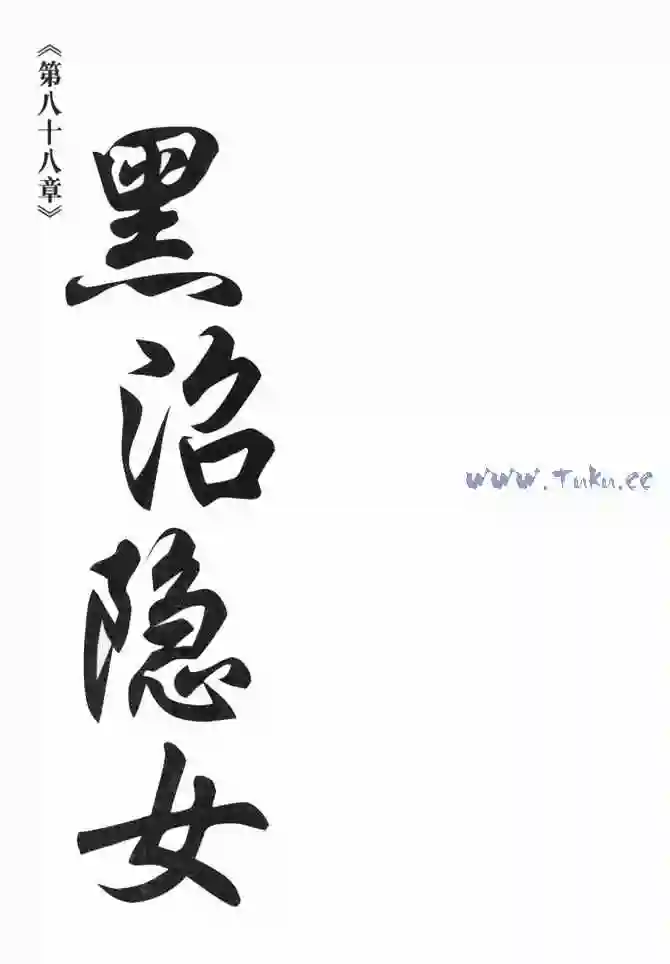 《第八十八章》
黑沼隐女
www.Tuku.cc